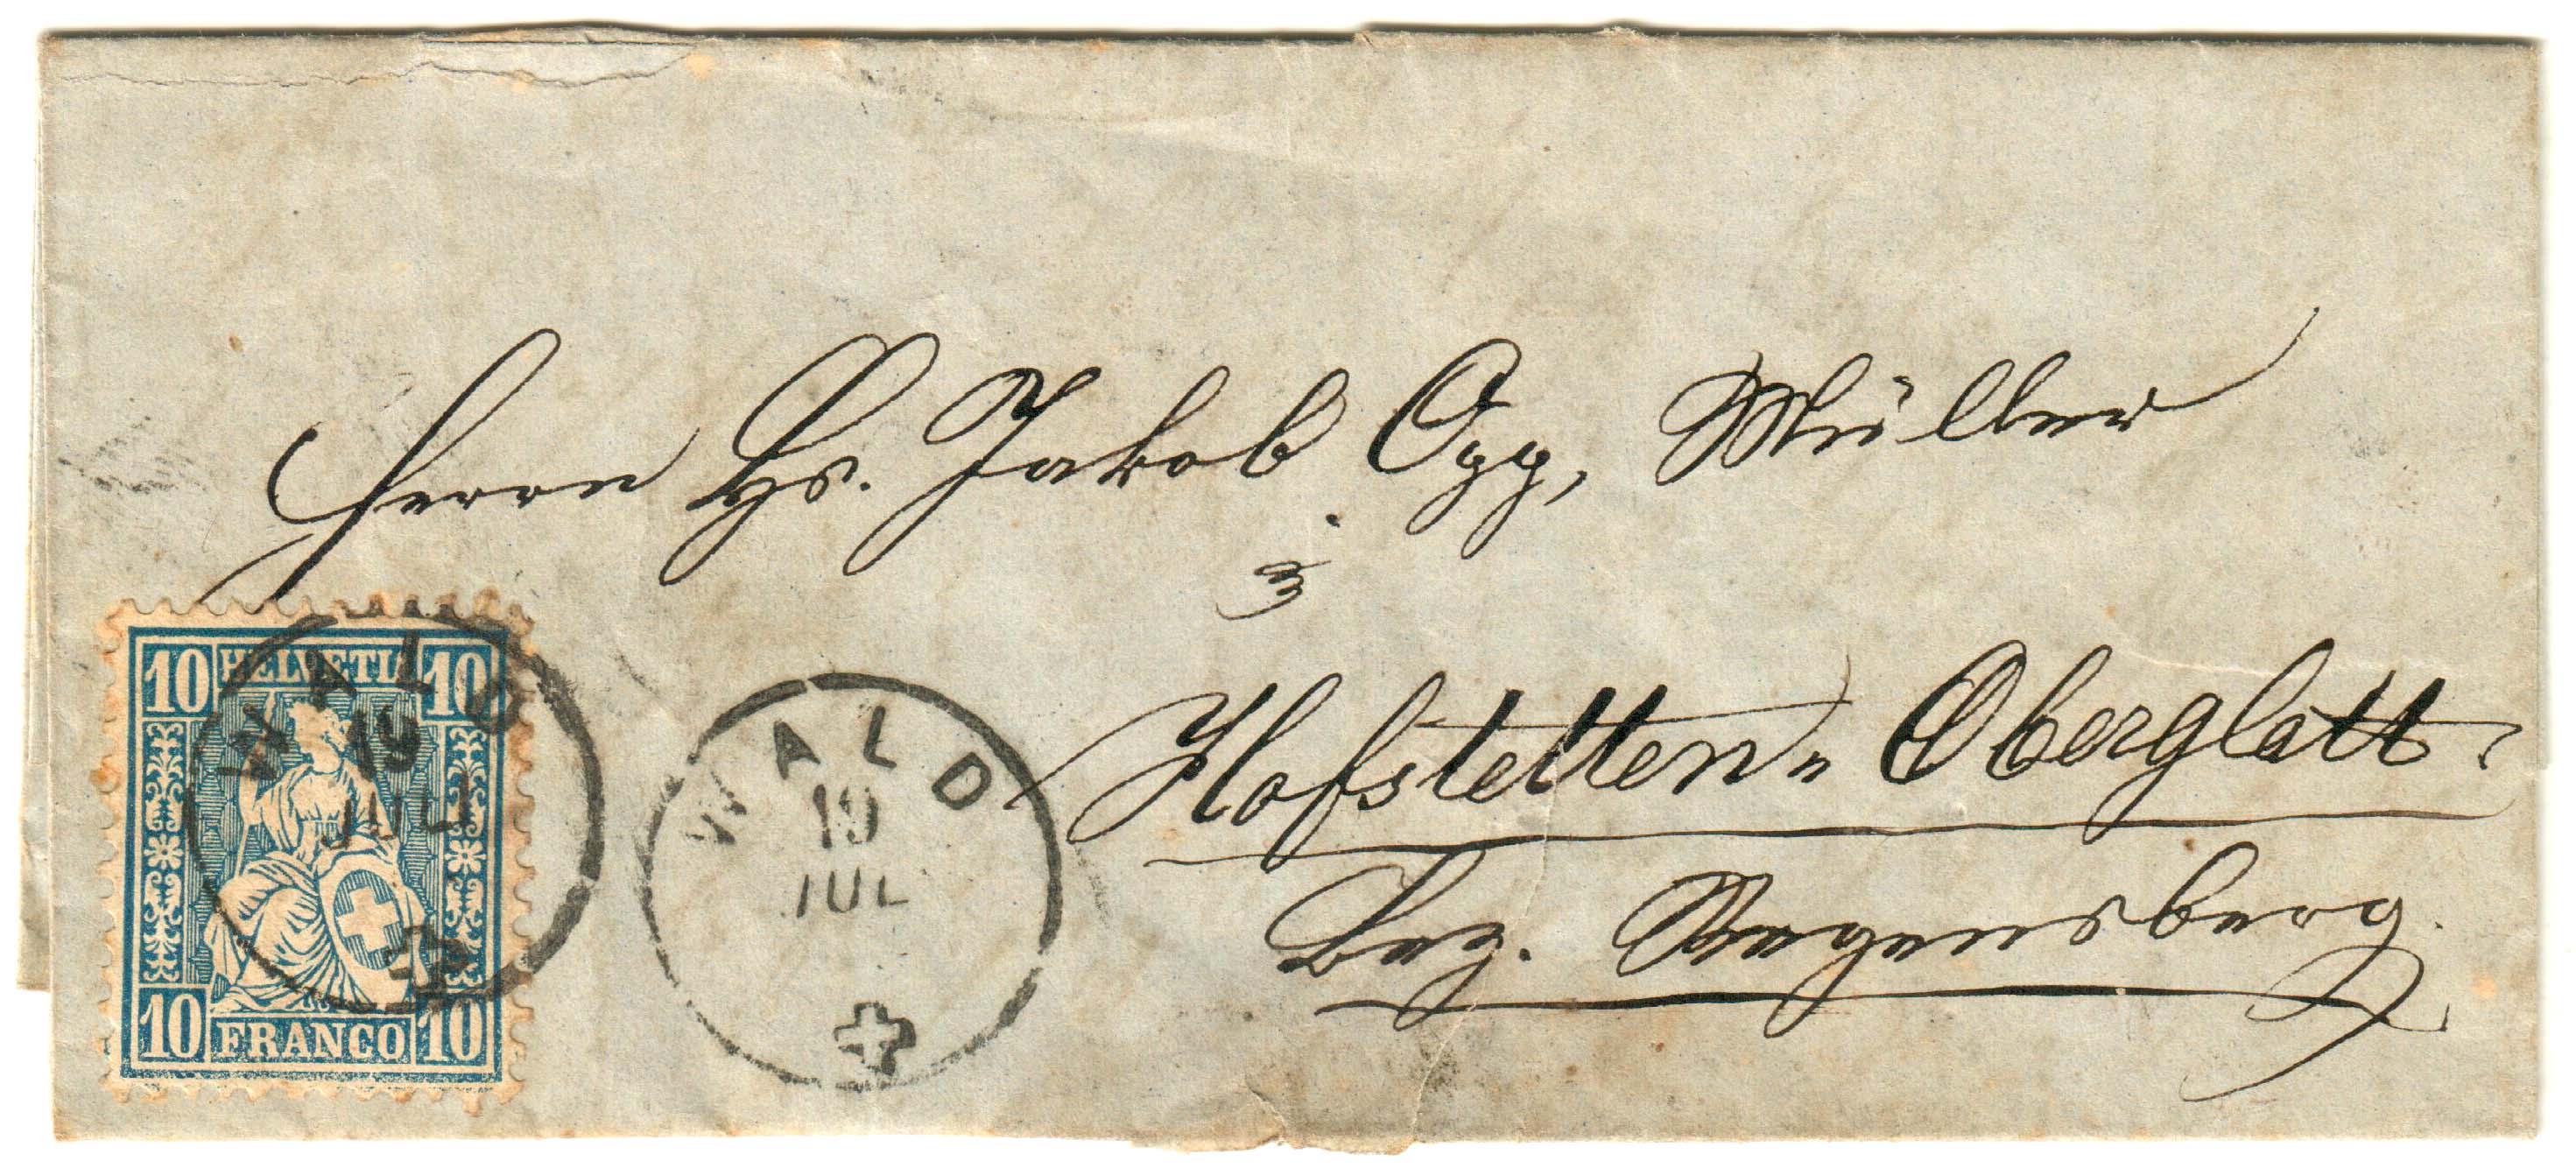 Herrn Hs. Jakob Ogg, Müller
in
Hofstetten-Oberglatt.
Bez. Regensberg.
10 HELVETIA 10
WALD
19
JUL
10 FRANCO 10
WALD
19
JUL